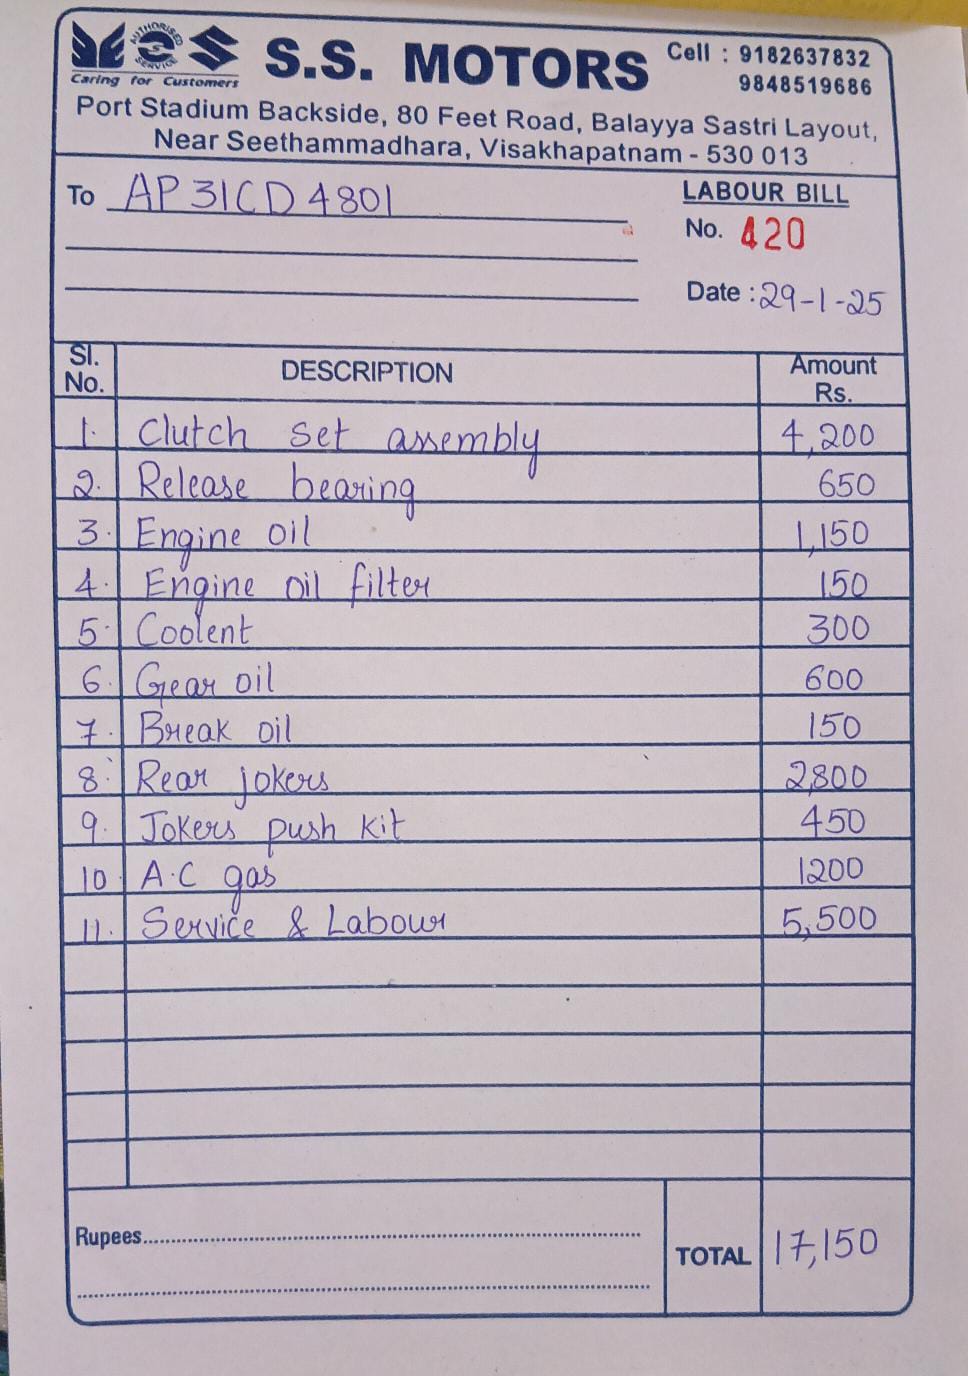 AUTHORISED SERVICE
Caring for Customers
S.S. MOTORS
Cell : 9182637832
9848519686
Port Stadium Backside, 80 Feet Road, Balayya Sastri Layout,
Near Seethammadhara, Visakhapatnam - 530 013
To AP 31CD 4801
LABOUR BILL
No. 420
Date : 29-1-25
Sl. No. DESCRIPTION Amount Rs.
1. Clutch set assembly 4,200
2. Release bearing 650
3. Engine oil 1,150
4. Engine oil filter 150
5. Coolent 300
6. Gear oil 600
7. Break oil 150
8. Rear jokers 2,800
9. Jokers push kit 450
10. A.C gas 1200
11. Service & Labour 5,500
Rupees
TOTAL 17,150